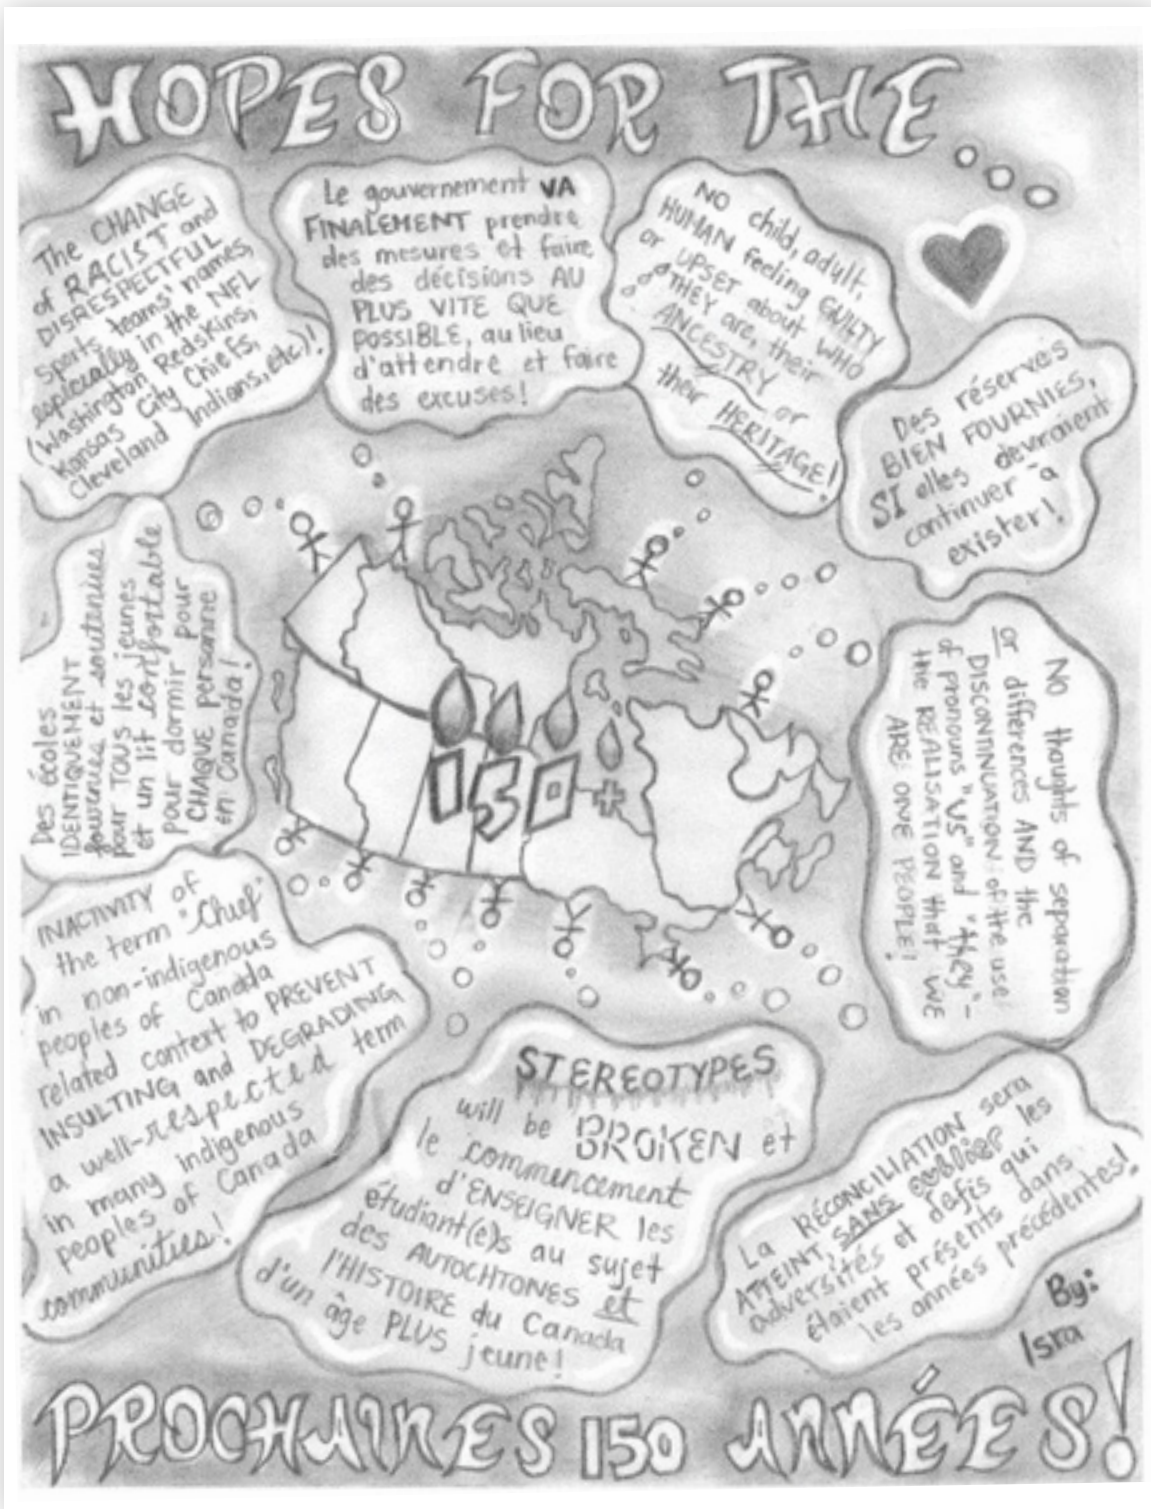 HOPES FOR THE...
The CHANGE
of RACIST and
DISRESPECTFUL
sports teams' names,
espicially in the NFL
(Washington Redskins,
Kansas City Chiefs,
Cleveland Indians, etc)!
Le gouvernement VA
FINALEMENT prendre
des mesures et faire
des décisions AU
PLUS VITE QUE
POSSIBLE, au lieu
d'attendre et faire
des excuses!
NO child, adult,
HUMAN feeling GUILTY
or UPSET about WHO
THEY are, their
ANCESTRY or
their HERITAGE!
Des réserves
BIEN FOURNIES,
SI elles devraient
continuer à
exister!
Des écoles
IDENTIQUEMENT
fournies et soutenues
pour TOUS les jeunes
et un lit confortable
pour dormir pour
CHAQUE personne
en Canada!
150+
No thoughts of separation
or differences AND the
DISCONTINUATION of the use
of pronouns "US" and "they"-
the REALISATION that WE
ARE ONE PEOPLE!
INACTIVITY of
the term "Chief"
in non-indigenous
peoples of Canada
related context to PREVENT
INSULTING and DEGRADING
a well-respected term
in many indigenous
peoples of Canada
communities!
STEREOTYPES
will be BROKEN et
le commencement
d'ENSEIGNER les
étudiant(e)s au sujet
des AUTOCHTONES et
l'HISTOIRE du Canada
d'un âge PLUS jeune!
La RÉCONCILIATION sera
ATTEINT, SANS oublier les
adversités et défis qui
étaient présents dans
les années précédentes!
By:
Isra
PROCHAINES 150 ANNÉES!